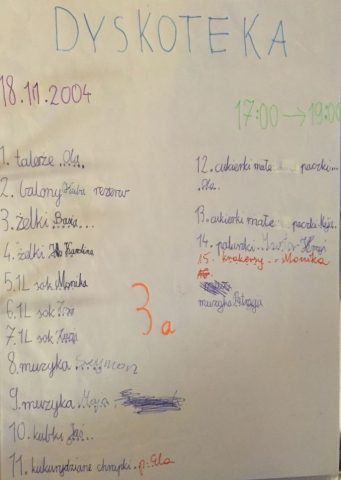 DYSKOTEKA
18.11.2004
17:00 → 19:00
1. talerze Ola
2. balony Kuba rezerw
3. żelki Basia
4. żelki Karolina
5. 1L sok Monika
6. 1L sok
7. 1L sok Kinga
8. muzyka Szymon
9. muzyka Maja
10. kubki Jaś
11. kukurydziane chrupki p. Ela
3a
12. cukierki małe paczki
Ola
13. cukierki małe paczka
14. paluszki
15. krakersy Monika
muzyka